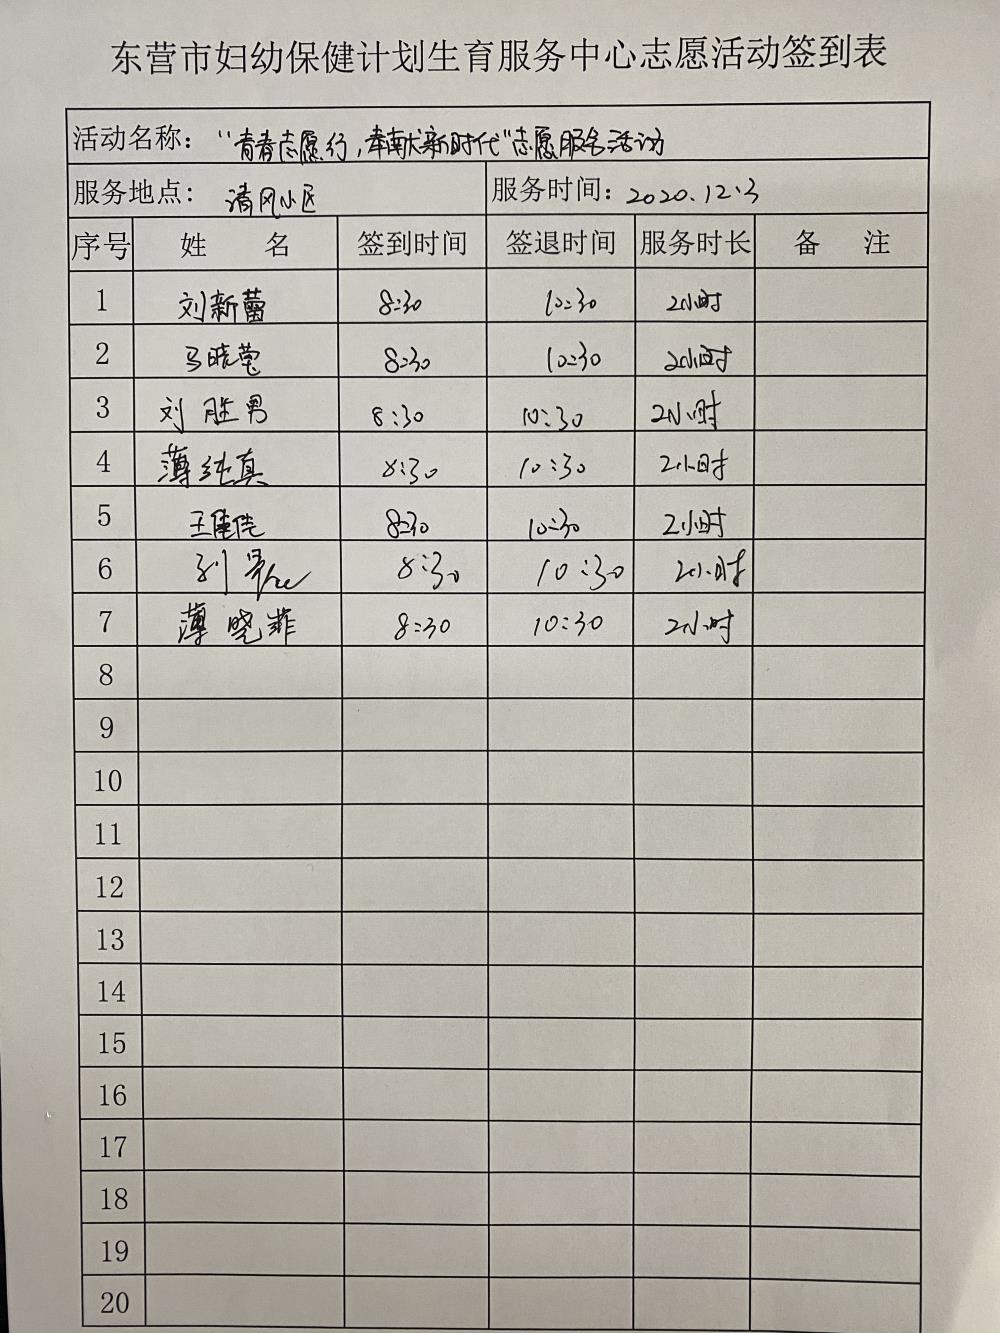 东营市妇幼保健计划生育服务中心志愿活动签到表
活动名称： “青春志愿行，奉献新时代”志愿服务活动
服务地点： 清风小区 服务时间：2020.12.3
序号 姓 名 签到时间 签退时间 服务时长 备 注
1 刘新蕾 8:30 10:30 2小时
2 马晓莹 8:30 10:30 2小时
3 刘胜男 8:30 10:30 2小时
4 薄纯真 8:30 10:30 2小时
5 王佳佳 8:30 10:30 2小时
6 8:30 10:30 2小时
7 薄晓菲 8:30 10:30 2小时
8
9
10
11
12
13
14
15
16
17
18
19
20